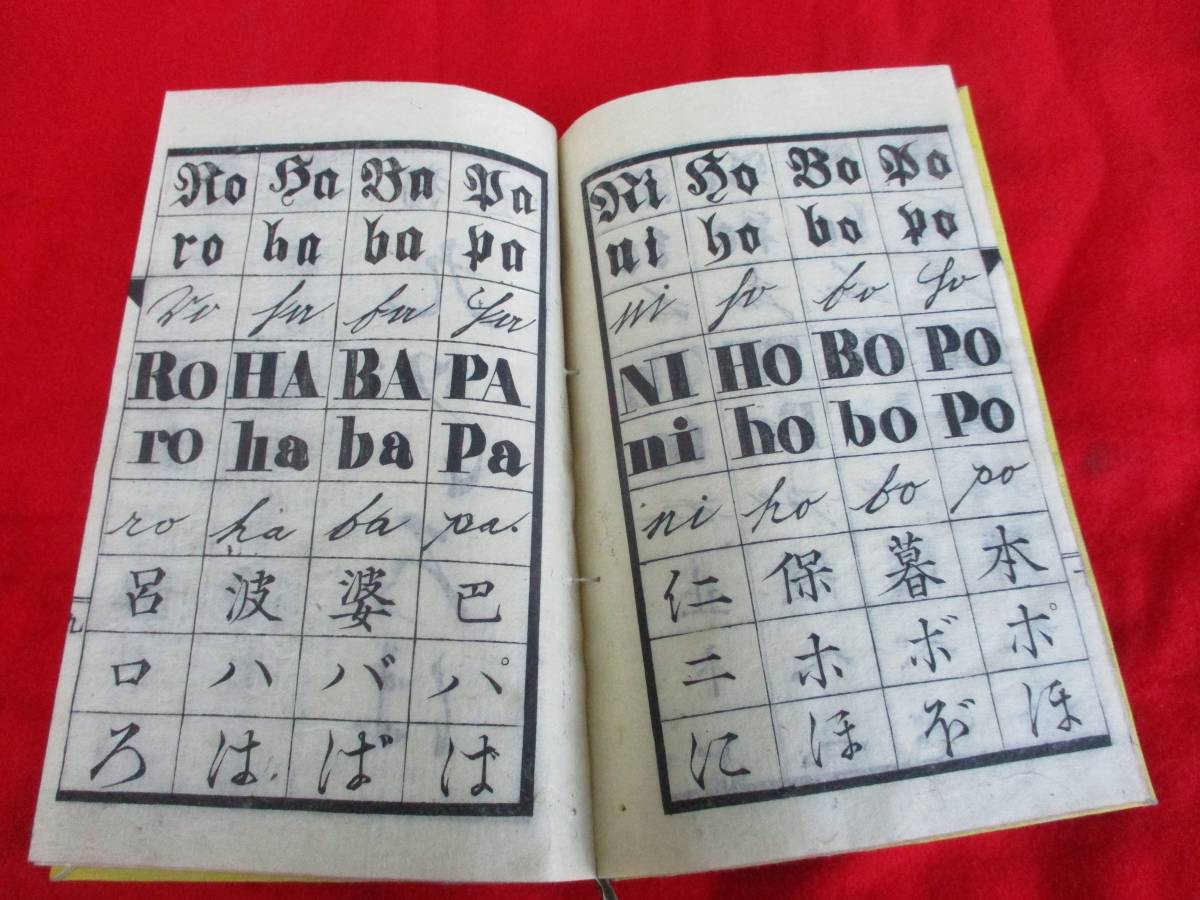 Ro Ha Ba Pa
ro ha ba pa
ro ha ba pa
Ro HA BA PA
ro ha ba Pa
ro ha ba pa.
呂 波 婆 巴
ロ ハ バ パ
ろ は ば ば
Ni Ho Bo Po
ni ho bo po
ni ho bo po
NI Ho Bo Po
ni ho bo Po
ni ho bo po
仁 保 暮 本
ニ ホ ボ ポ
に ほ ほ